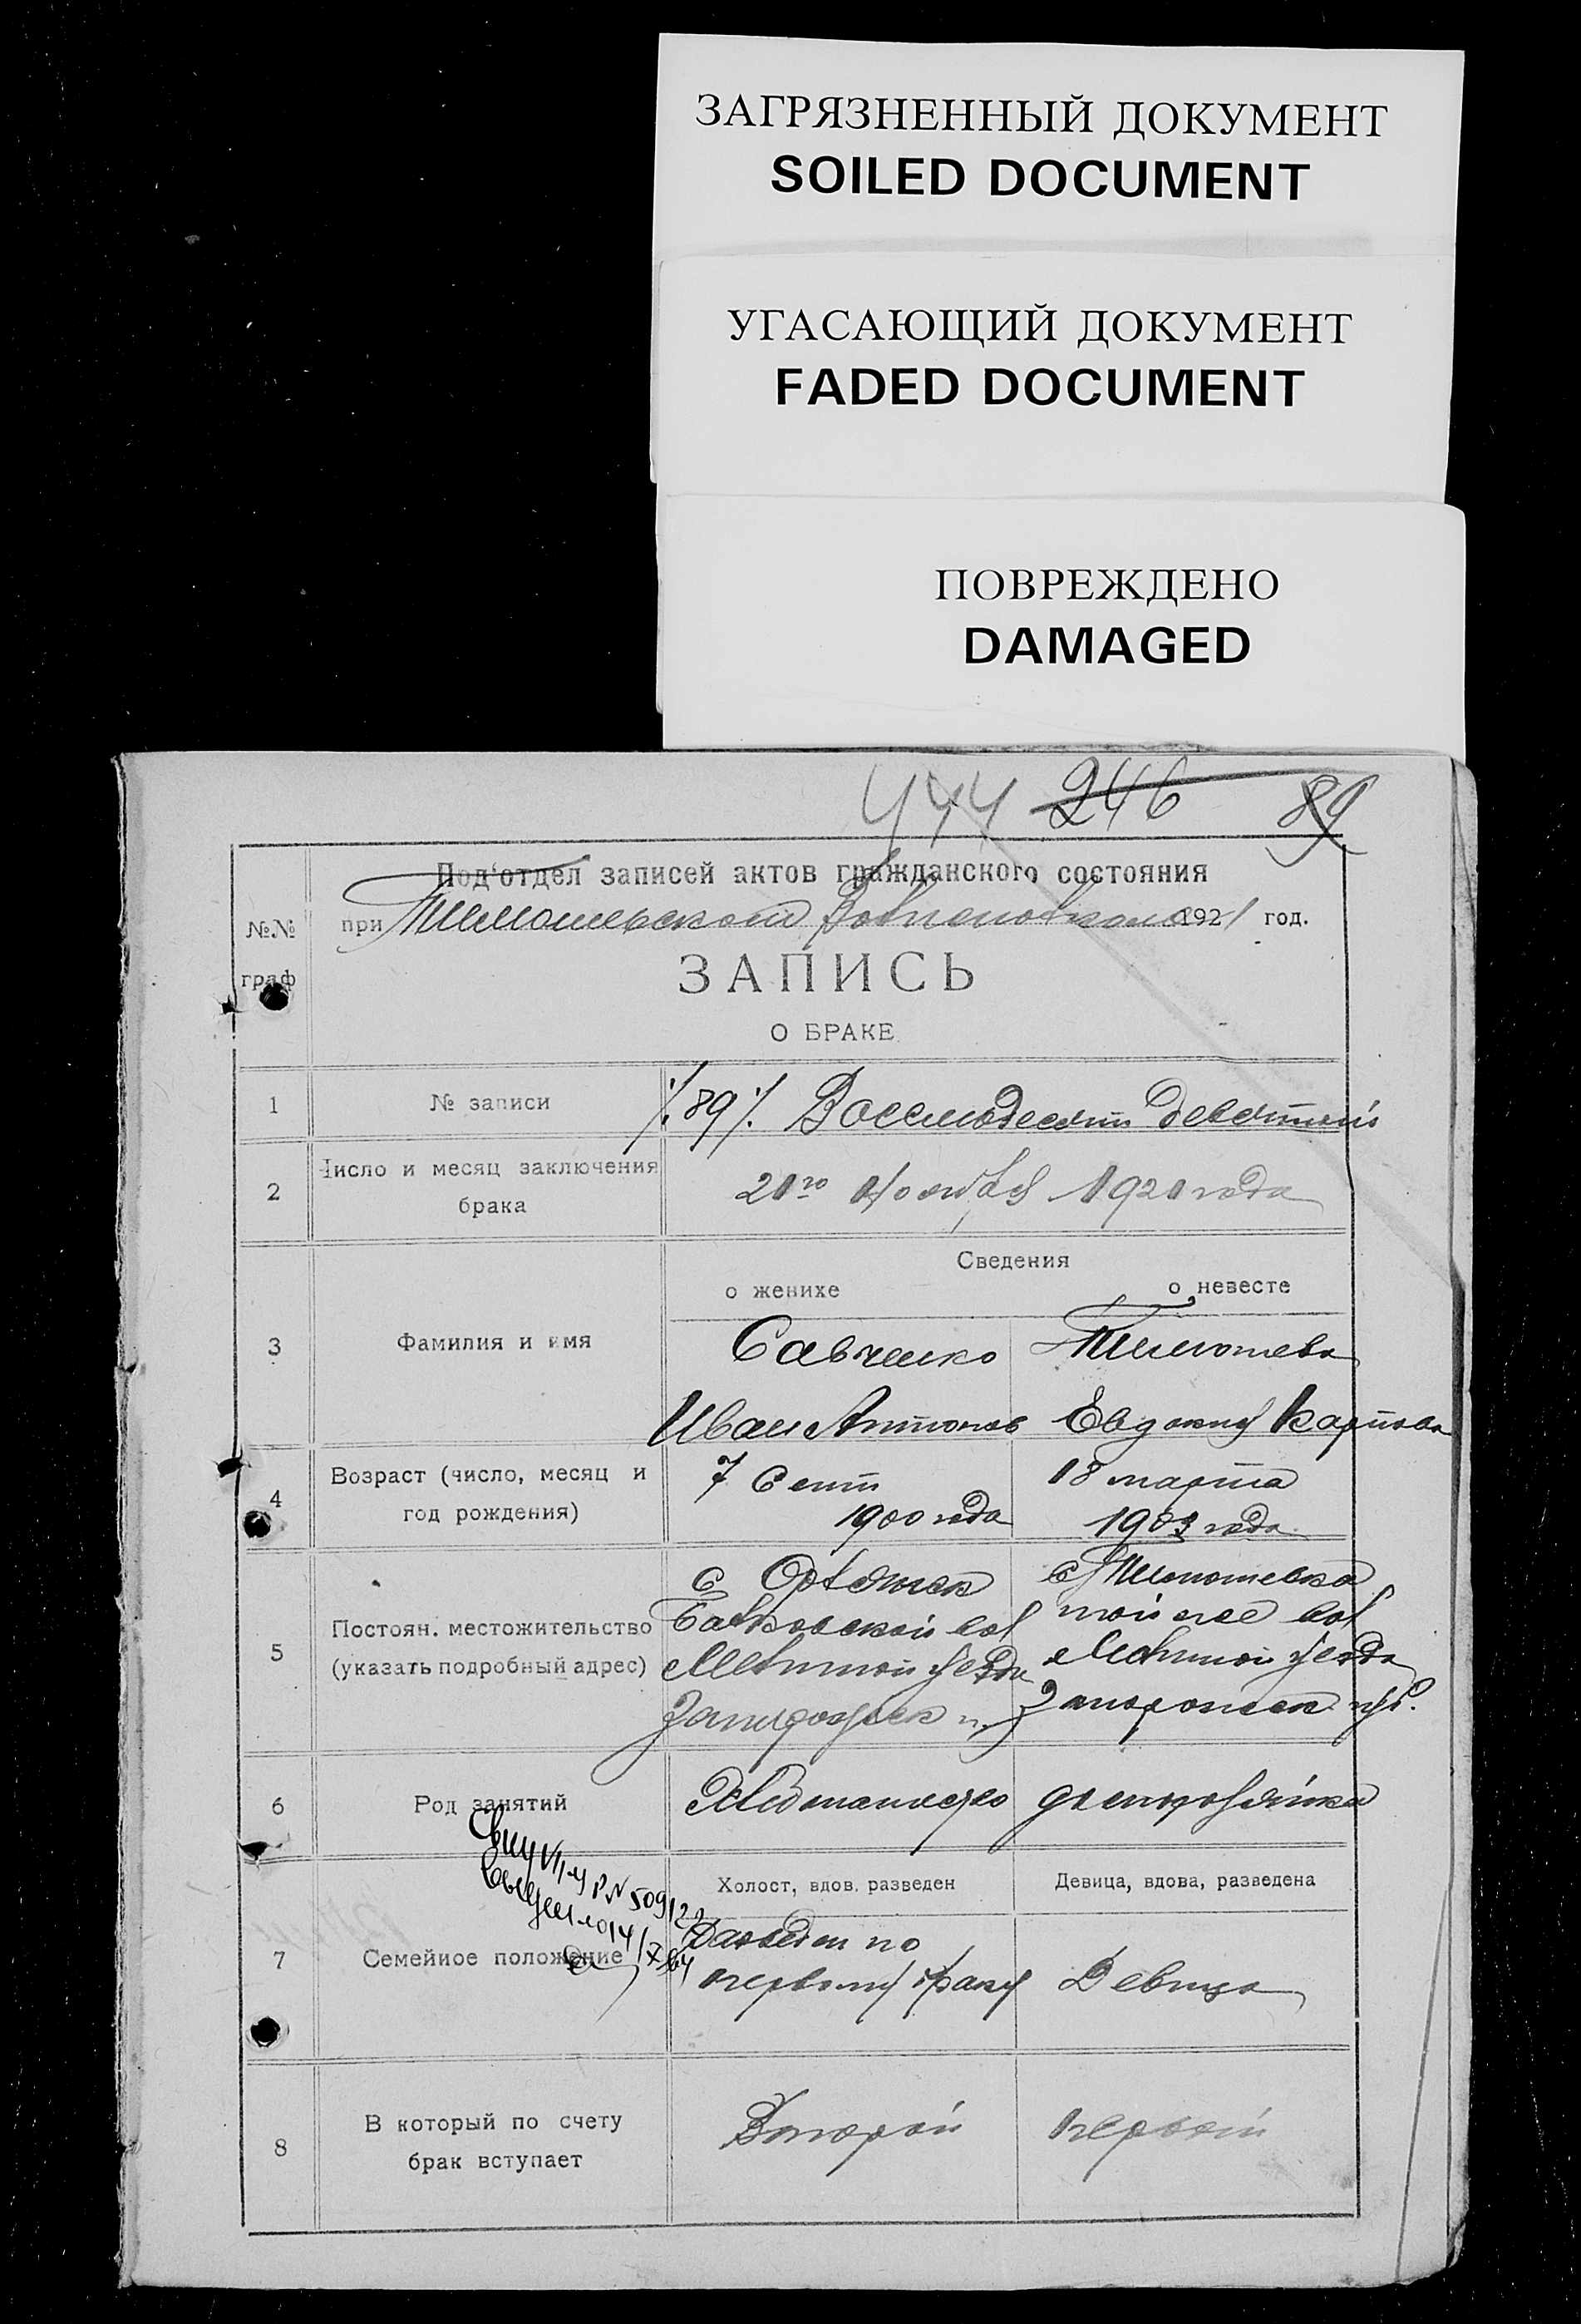 ЗАГРЯЗНЕННЫЙ ДОКУМЕНТ
SOILED DOCUMENT
УГАСАЮЩИЙ ДОКУМЕНТ
FADED DOCUMENT
ПОВРЕЖДЕНО
DAMAGED
444 246 89
Под'отдел записей актов гражданского состояния
№№ граф
при Тимошевском 1921 год.
ЗАПИСЬ
О БРАКЕ
1 № записи ./. 89 ./. Восемьдесят девятый
2 Число и месяц заключения
брака
21го ноября 1921 года
Сведения
о женихе о невесте
3 Фамилия и имя
Савченко Тимошева
Иван Антонов Евдокия Карпова
4 Возраст (число, месяц и
год рождения)
7 Сент 18 марта
1900 года 1903 года
5 Постоян. местожительство
(указать подробный адрес)
с с Тимошевка
вол той же вол
уезда уезда
Запорожск г. Запорожск губ.
6 Род занятий
Холост, вдов. разведен Девица, вдова, разведена
7 Семейное положение
Разведен по
первому браку Девица
8 В который по счету
брак вступает
Второй первый